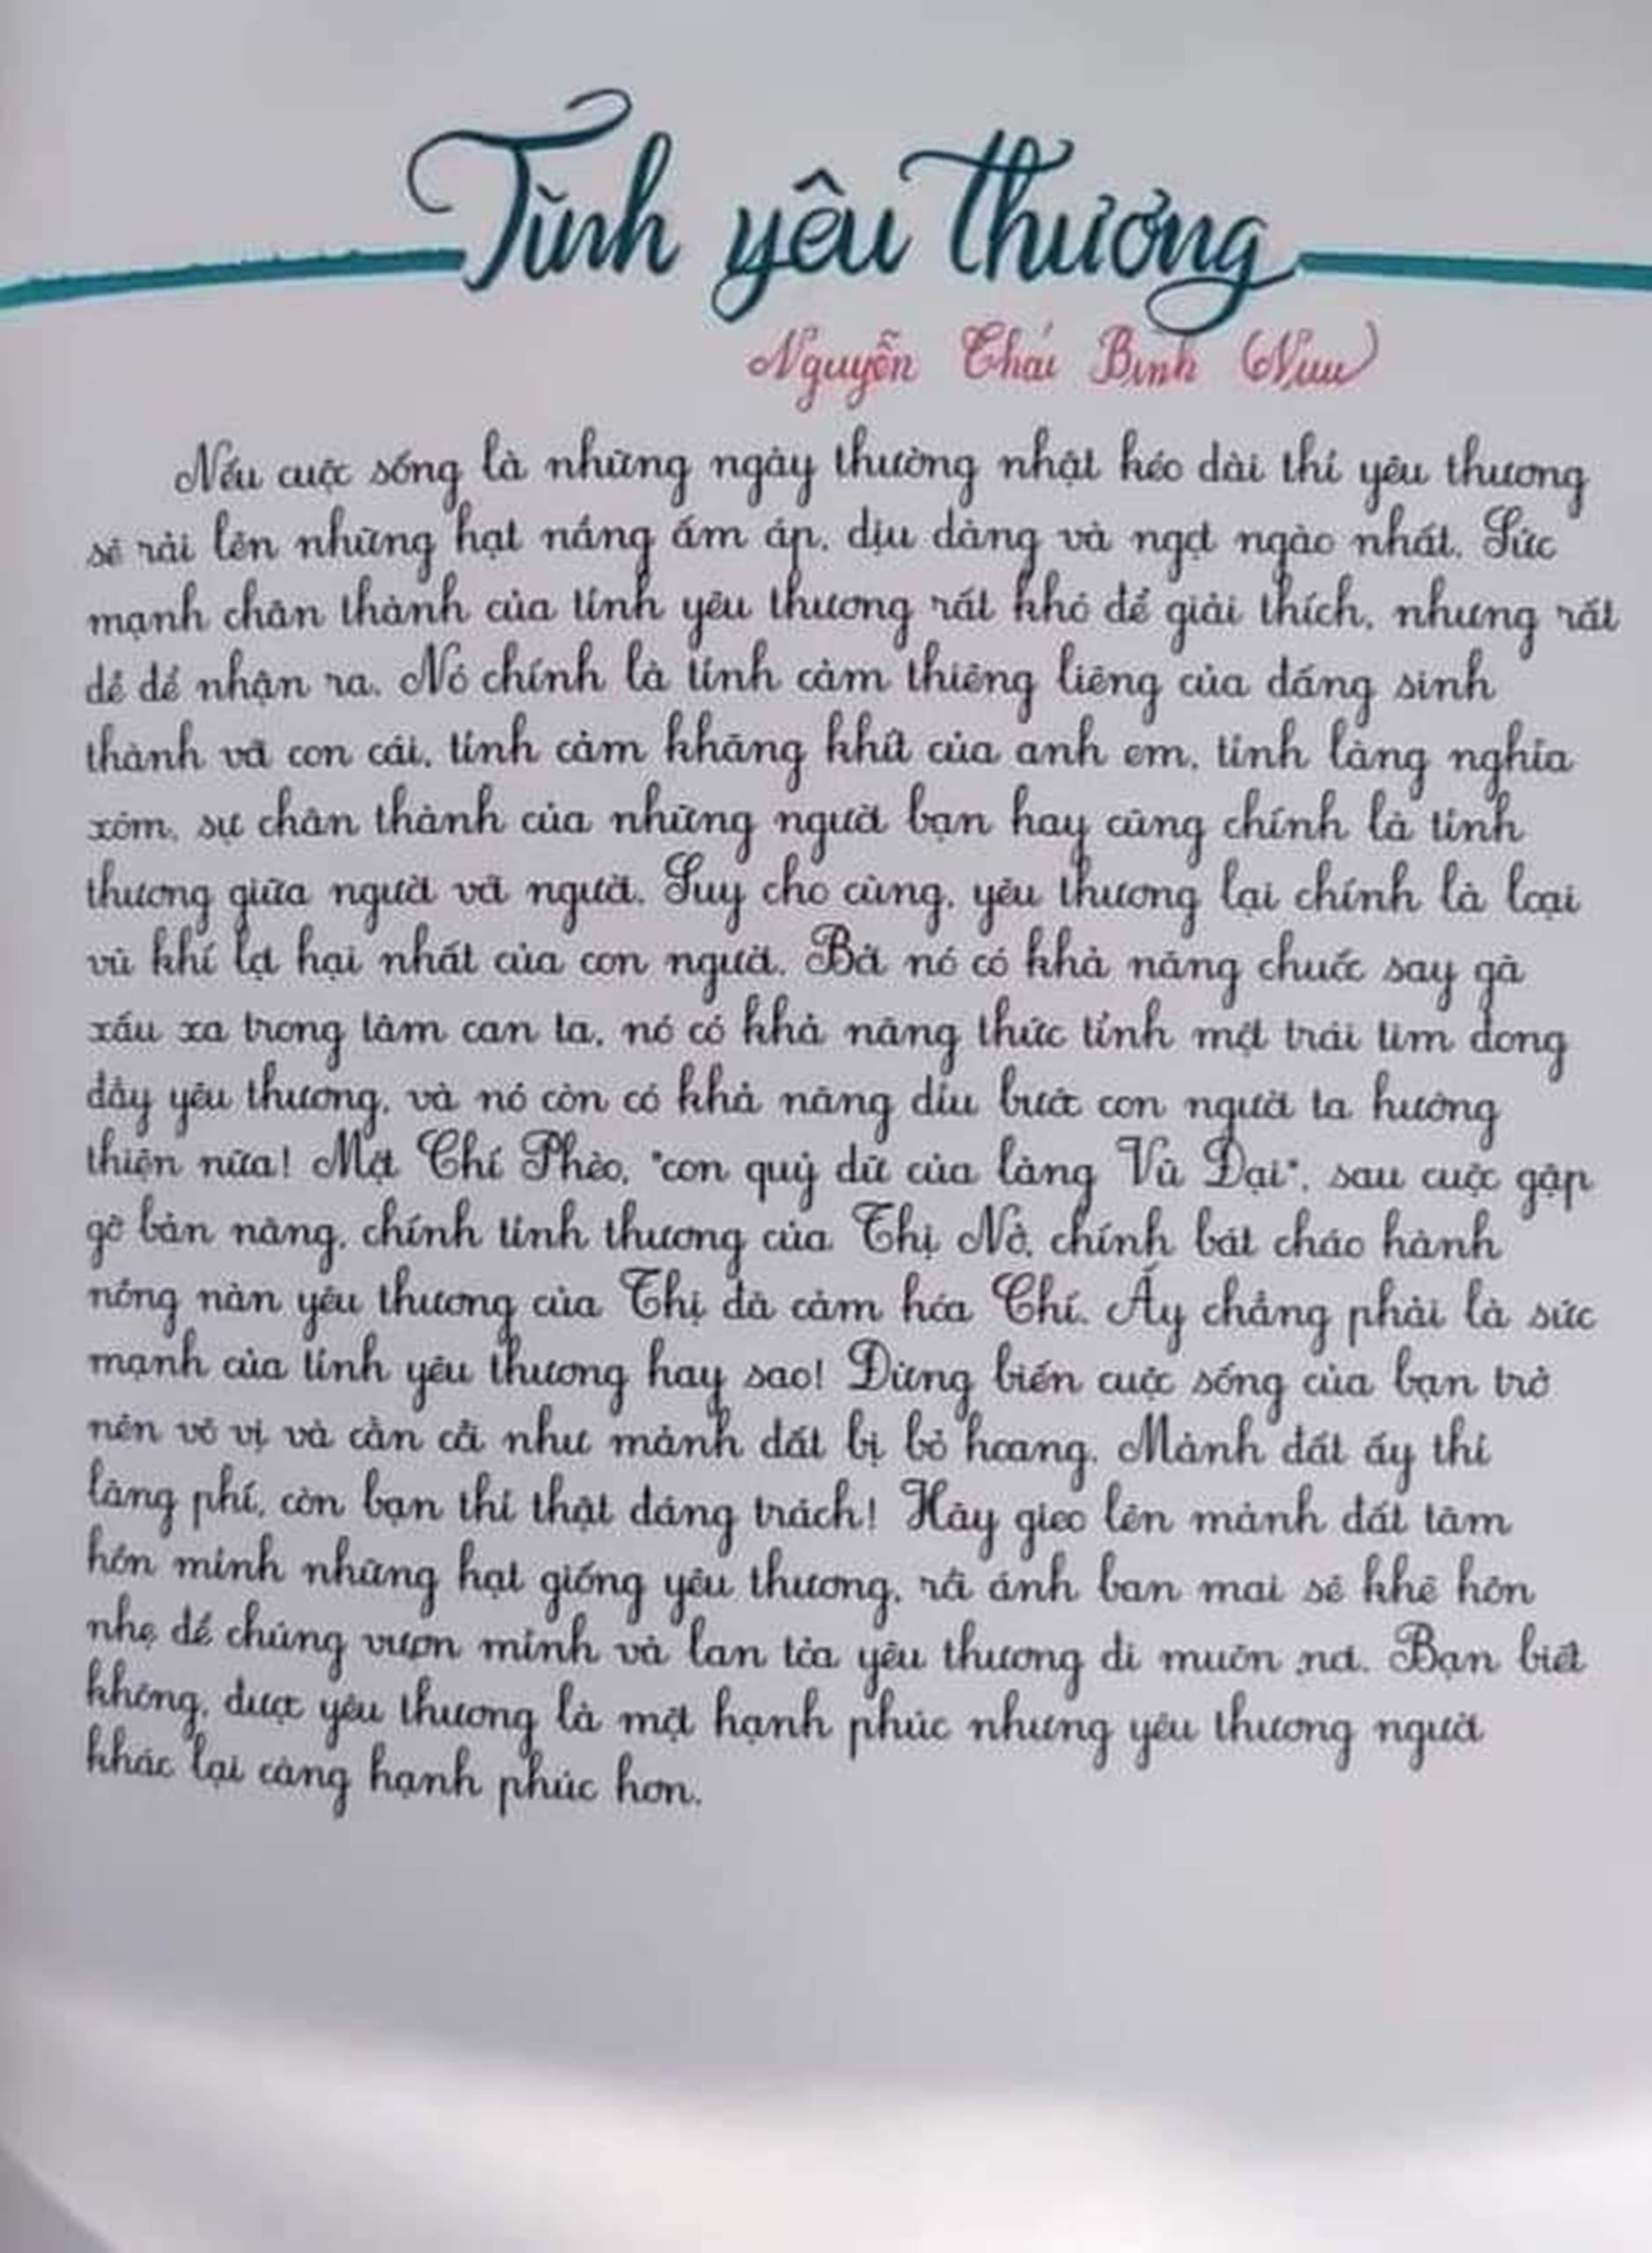 Tình yêu thương
Nguyễn Thái Bình (Nuu)
Nếu cuộc sống là những ngày thường nhật kéo dài thì yêu thương
sẽ rải lên những hạt nắng ấm áp, dịu dàng và ngọt ngào nhất. Sức
mạnh chân thành của tình yêu thương rất khó để giải thích, nhưng rất
dễ để nhận ra. Nó chính là tình cảm thiêng liêng của đấng sinh
thành với con cái, tình cảm khăng khít của anh em, tình làng nghĩa
xóm, sự chân thành của những người bạn hay cũng chính là tình
thương giữa người với người. Suy cho cùng, yêu thương lại chính là loại
vũ khí lợi hại nhất của con người. Bởi nó có khả năng chuốc say gã
xấu xa trong tâm can ta, nó có khả năng thức tỉnh một trái tim đong
đầy yêu thương, và nó còn có khả năng dìu bước con người ta hướng
thiện nữa! Một Chí Phèo, "con quỷ dữ của làng Vũ Đại", sau cuộc gặp
gỡ bản năng, chính tình thương của Thị Nở, chính bát cháo hành
nồng nàn yêu thương của Thị đã cảm hóa Chí. Ấy chẳng phải là sức
mạnh của tình yêu thương hay sao! Đừng biến cuộc sống của bạn trở
nên vô vị và cằn cỗi như mảnh đất bị bỏ hoang. Mảnh đất ấy thì
lãng phí, còn bạn thì thật đáng trách! Hãy gieo lên mảnh đất tâm
hồn mình những hạt giống yêu thương, rồi ánh ban mai sẽ khẽ hôn
nhẹ để chúng vươn mình và lan tỏa yêu thương đi muôn nơi. Bạn biết
không, được yêu thương là một hạnh phúc nhưng yêu thương người
khác lại càng hạnh phúc hơn.